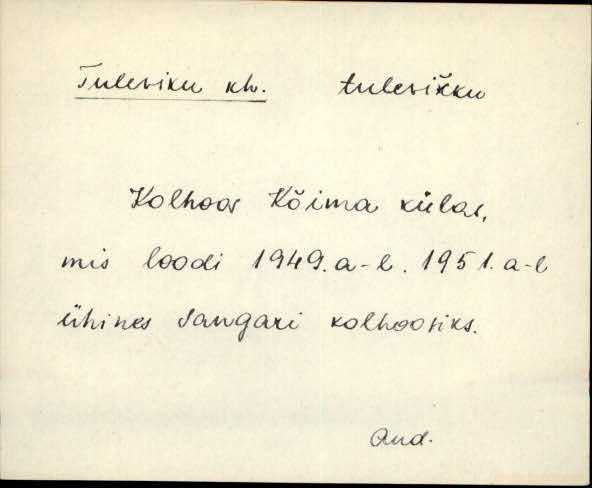 Tuleviku kh. tulevikku
Kolhoos Kõima külas,
mis loodi 1949. a-l. 1951. a-l
ühines Sangari kolhoosiks.
Aud.